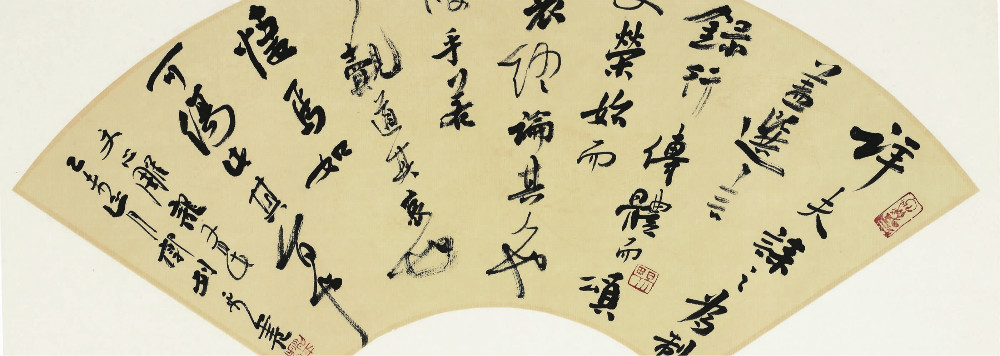 詳夫誄之為制
蓋選言
錄行傳體而頌
文榮始而
哀終論其人也
乎若
覿道其哀也
悽焉如
可傷此其旨也
文心雕龍